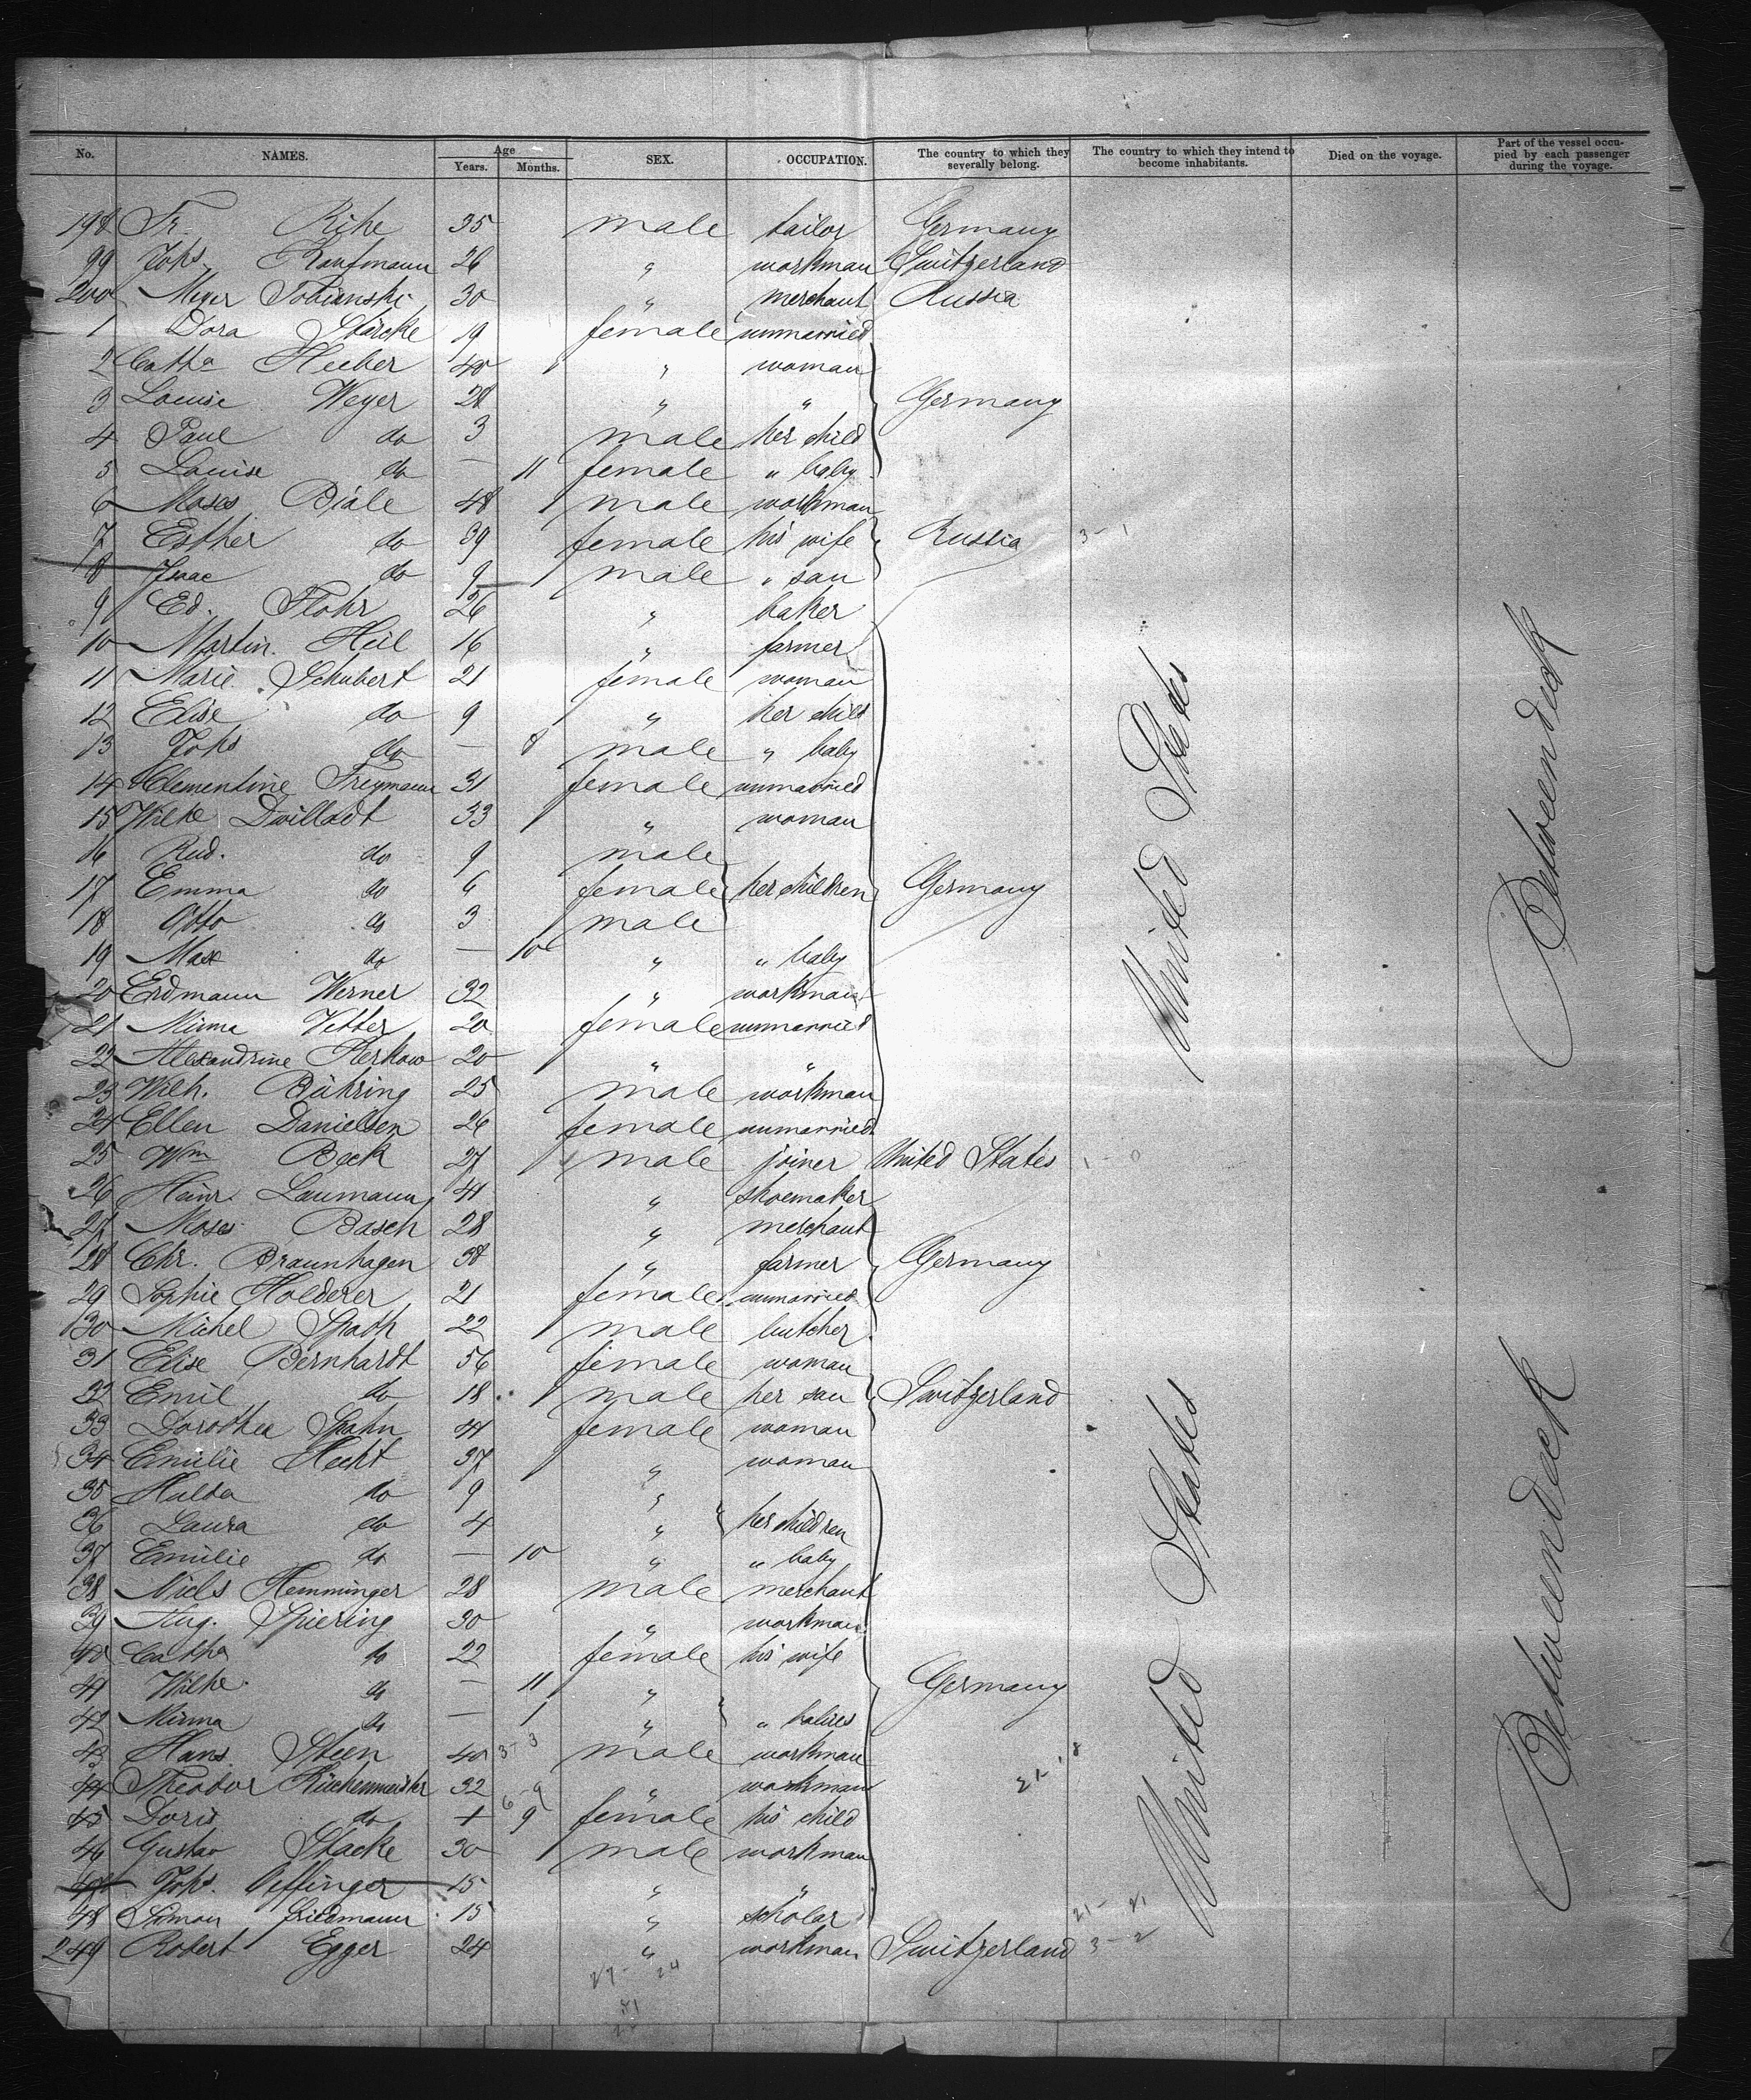 No. NAMES. Age Years. Months. SEX. OCCUPATION. The country to which they severally belong. The country to which they intend to become inhabitants. Died on the voyage. Part of the vessel occupied by each passenger during the voyage.
198 Fr. Rihe 35 male tailor Germany
99 Johs Kaufmann 26 " workman Switzerland
200 Meyer Tobianski 30 " merchant Russia
1 Dora Starcke 19 female unmarried
2 Catha Hueber 40 " woman
3 Louise Weyer 28 " " Germany
4 Paul do 3 male her child
5 Louise do — 11 female " baby
6 Moses Biale 48 male workman
7 Esther do 39 female his wife Russia 3-1
8 Isaac do 9 male " son
9 Ed. Flohr 26 " baker
10 Martin Heil 16 " farmer
11 Marie Schubert 21 female woman
12 Elise do 9 " her child
13 Johs do — 8 male " baby
14 Clementine Freymann 31 female unmarried
15 Wilhe Dwilladt 33 " woman
16 Rud. do 9 male
17 Emma do 6 female her children Germany
18 Otto do 3 male
19 Max do — 10 " " baby
20 Erdmann Werner 32 " workman
21 Minna Vetter 20 female unmarried
22 Alexandrine Kerkow 20 " "
23 Wilh. Bühring 25 male workman
24 Ellen Danielsen 26 female unmarried
25 Wm Beck 27 male joiner United States 1-0
26 Heinr. Laumann 41 " shoemaker
27 Moses Basch 28 " merchant
28 Chr. Braunhagen 38 " farmer Germany
29 Sophie Holderer 21 female unmarried
30 Michel Spath 22 male butcher
31 Elise Bernhardt 56 female woman
32 Emil do 18 male her son Switzerland
33 Dorothea Spahn 41 female woman
34 Emilie Hecht 37 " woman
35 Hulda do 9 "
36 Laura do 4 " her children
37 Emilie do — 10 " " baby
38 Niels Hemminger 28 male merchant
39 Aug. Spiering 30 " workman
40 Catha do 22 female his wife
41 Wilhe. do — 11 " Germany
42 Minna do — 1 " " babies
43 Hans Steen 40 3-3 male workman
44 Theodor Küchenmeister 32 " workman
45 Doris do 1 9 female his child
46 Gustav Stacke 30 male workman
47 Johs. Oeffinger 15 " "
48 Simon Friedmann 15 " scholar
249 Robert Egger 24 " workman Switzerland 3-2
United States
Betweendeck
United States
Betweendeck